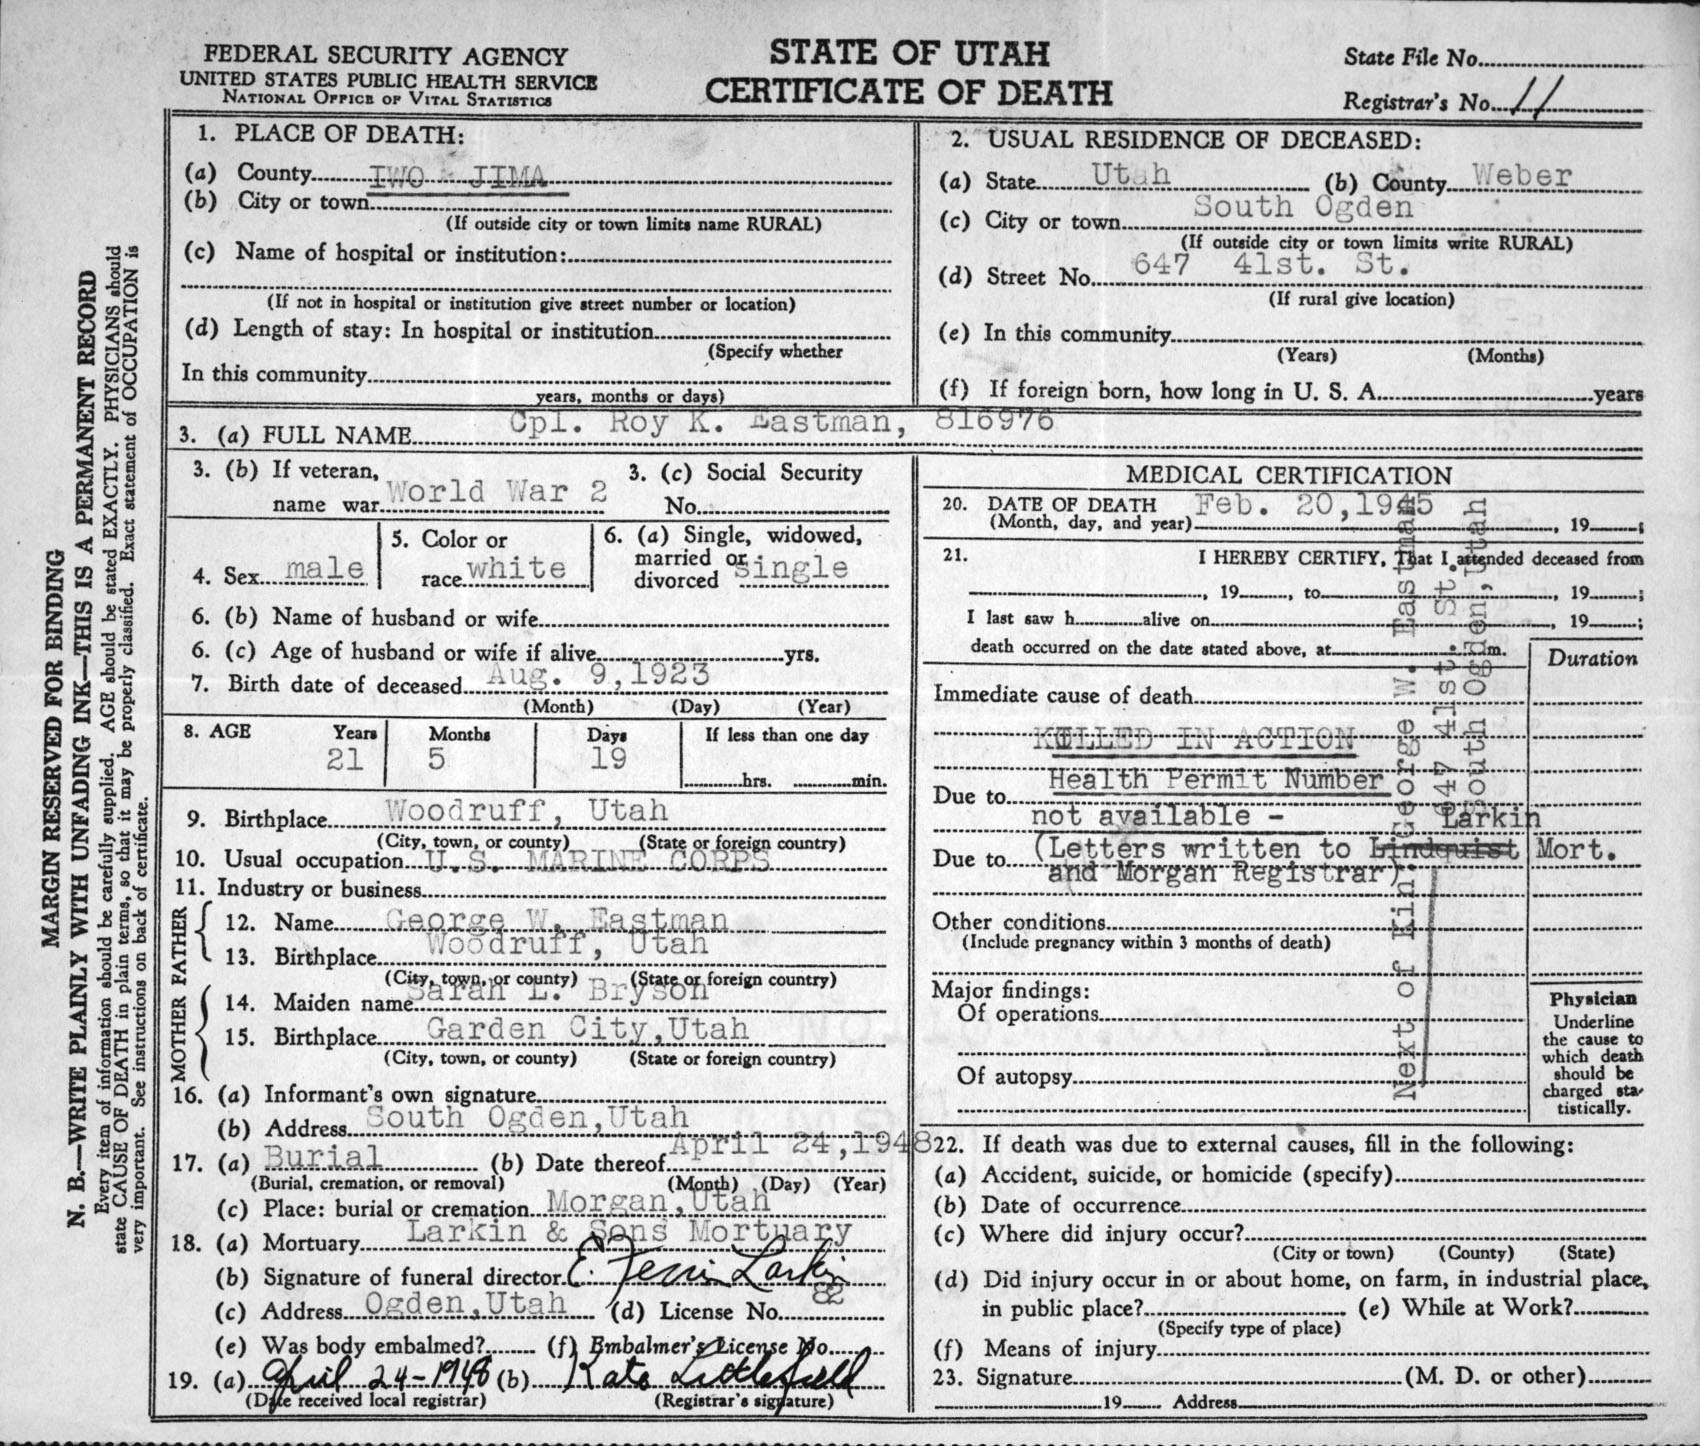 FEDERAL SECURITY AGENCY
UNITED STATES PUBLIC HEALTH SERVICE
NATIONAL OFFICE OF VITAL STATISTICS
STATE OF UTAH
CERTIFICATE OF DEATH
State File No.
Registrar's No. 11
MARGIN RESERVED FOR BINDING
N. B.—WRITE PLAINLY WITH UNFADING INK—THIS IS A PERMANENT RECORD
Every item of information should be carefully supplied. AGE should be stated EXACTLY. PHYSICIANS should
state CAUSE OF DEATH in plain terms, so that it may be properly classified. Exact statement of OCCUPATION is
very important. See instructions on back of certificate.
1. PLACE OF DEATH:
(a) County IWO JIMA
(b) City or town
(If outside city or town limits name RURAL)
(c) Name of hospital or institution:
(If not in hospital or institution give street number or location)
(d) Length of stay: In hospital or institution
(Specify whether
In this community
years, months or days)
2. USUAL RESIDENCE OF DECEASED:
(a) State Utah (b) County Weber
(c) City or town South Ogden
(If outside city or town limits write RURAL)
(d) Street No. 647 41st. St.
(If rural give location)
(e) In this community
(Years) (Months)
(f) If foreign born, how long in U. S. A. years
3. (a) FULL NAME Cpl. Roy K. Eastman, 816976
3. (b) If veteran,
name war World War 2
3. (c) Social Security
No.
4. Sex male
5. Color or
race white
6. (a) Single, widowed,
married or
divorced single
6. (b) Name of husband or wife
6. (c) Age of husband or wife if alive yrs.
7. Birth date of deceased Aug. 9,1923
(Month) (Day) (Year)
8. AGE Years Months Days If less than one day
21 5 19 hrs. min.
9. Birthplace Woodruff, Utah
(City, town, or county) (State or foreign country)
10. Usual occupation U.S. MARINE CORPS
11. Industry or business
FATHER
12. Name George W. Eastman
13. Birthplace Woodruff, Utah
(City, town, or county) (State or foreign country)
MOTHER
14. Maiden name Sarah L. Bryson
15. Birthplace Garden City,Utah
(City, town, or county) (State or foreign country)
16. (a) Informant's own signature
(b) Address South Ogden,Utah
17. (a) Burial (b) Date thereof April 24,1948
(Burial, cremation, or removal) (Month) (Day) (Year)
(c) Place: burial or cremation Morgan,Utah
18. (a) Mortuary Larkin & Sons Mortuary
(b) Signature of funeral director E. Larkin
(c) Address Ogden,Utah (d) License No. 82
(e) Was body embalmed? (f) Embalmer's License No.
19. (a) April 24-1948 (b) Kate Littlefield
(Date received local registrar) (Registrar's signature)
MEDICAL CERTIFICATION
20. DATE OF DEATH Feb. 20,1945
(Month, day, and year) , 19 ;
21. I HEREBY CERTIFY, That I attended deceased from
, 19 , to , 19 ;
I last saw h alive on , 19 ;
death occurred on the date stated above, at m.
Duration
Immediate cause of death
KILLED IN ACTION
Health Permit Number
Due to
not available -
Larkin
Due to (Letters written to Lindquist Mort.
and Morgan Registrar)
Other conditions
(Include pregnancy within 3 months of death)
Major findings:
Of operations
Of autopsy
Physician
Underline
the cause to
which death
should be
charged sta-
tistically.
Next of Kin: George W. Eastman
647 41st. St.
South Ogden,Utah
22. If death was due to external causes, fill in the following:
(a) Accident, suicide, or homicide (specify)
(b) Date of occurrence
(c) Where did injury occur?
(City or town) (County) (State)
(d) Did injury occur in or about home, on farm, in industrial place,
in public place? (e) While at Work?
(Specify type of place)
(f) Means of injury
23. Signature (M. D. or other)
19 Address